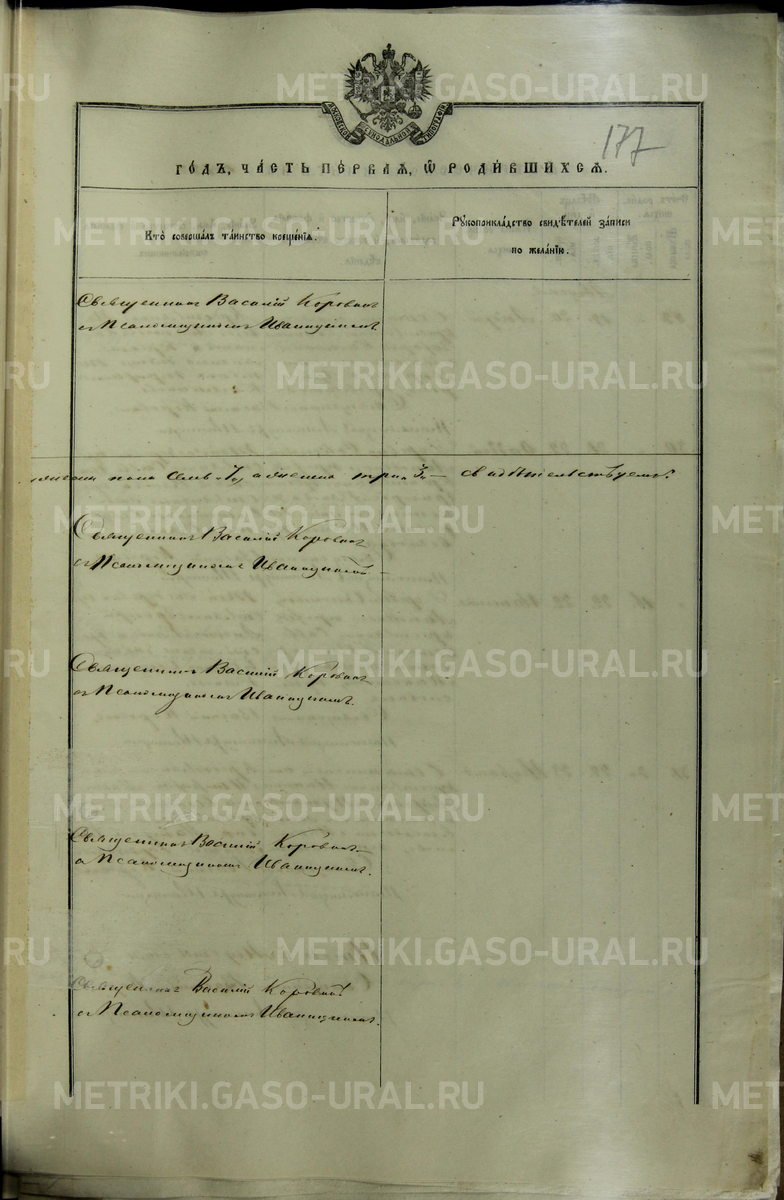 МОСКОВСКОЙ СѴНОДАЛЬНОЙ ТИПОГРАФІИ
177
ГО́ДЪ, ЧА́СТЬ ПЕ́РВАЯ, Ѿ РОДИ́ВШИХСЯ.
Кто̀ соверша́лъ та́инство креще́нїѧ.
Рꙋкоприкла́дство свидѣ́телей за́писи
по жела́нїю.
Священникъ Василій Коровинъ
съ Псаломщикомъ Иваницкимъ
пола семь "7", а женска три "3" — свидѣтельствуемъ.
Священникъ Василій Коровинъ
съ Псаломщикомъ Иваницкимъ
Священникъ Василій Коровинъ
съ Псаломщикомъ Иваницкимъ.
Священникъ Василій Коровинъ
съ Псаломщикомъ Иваницкимъ.
Священникъ Василій Коровинъ
съ Псаломщикомъ Иваницкимъ.
METRIKI.GASO-URAL.RU